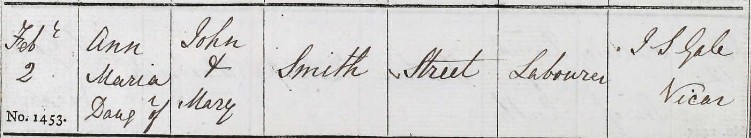 Feb.r
2
No. 1453.
Ann
Maria
Daugr of
John
&
Mary
Smith
Street
Labourer
I S Gale
Vicar